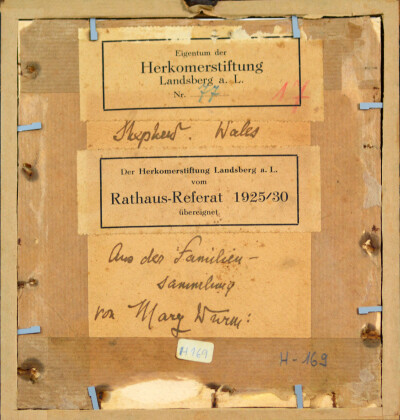 Eigentum der
Herkomerstiftung
Landsberg a. L.
Nr. 77
Shepherd. Wales
Der Herkomerstiftung Landsberg a. L.
vom
Rathaus-Referat 1925/30
übereignet
Aus der Familien-
sammlung
von Mary Wurm:
H 169
H-169